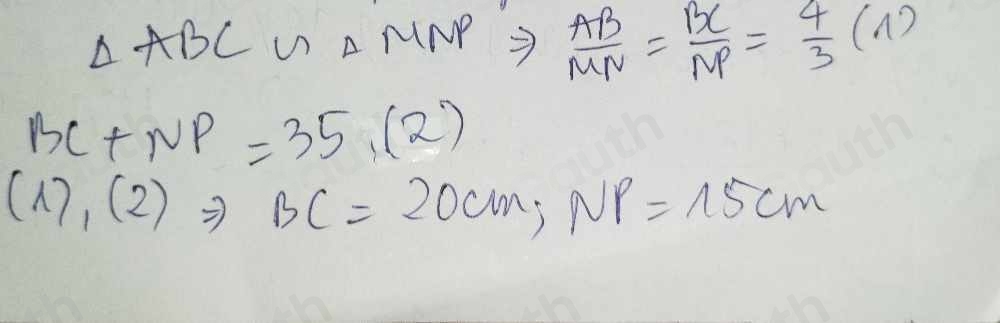 Δ ABC ∽ Δ MNP ⇒ AB/MN = BC/NP = 4/3 (1)
BC + NP = 35. (2)
(1), (2) ⇒ BC = 20cm; NP = 15cm